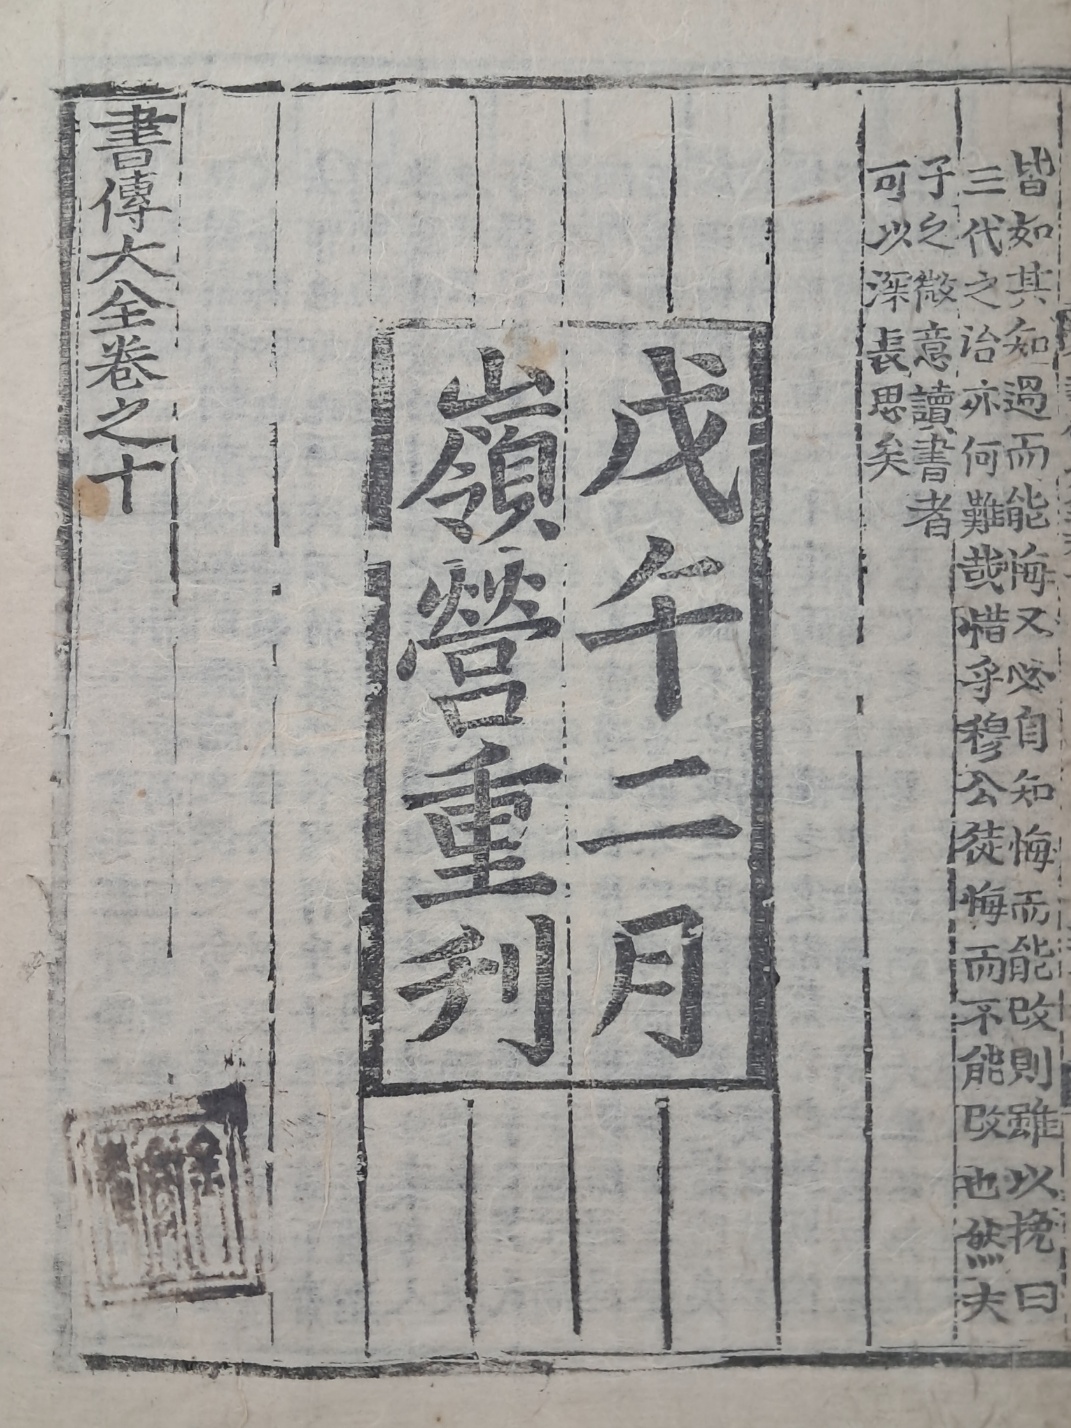 皆如其知過而能悔又必自知悔而能改則雖以挽曰
三代之治亦何難哉惜乎穆公徒悔而不能改也然夫
子之微意讀書者
可以深長思矣
戊午二月
嶺營重刊
書傳大全卷之十